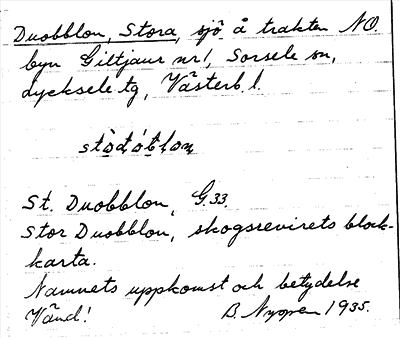 Duobblon, Stora, sjö å trakten NO.
byn Giltjaur nr 1, Sorsele sn,
Lycksele tg, Västerb. l.
stòdóblon
St. Duobblon, G.33.
Stor Duobblon, skogsrevirets block-
karta.
Namnets uppkomst och betydelse
Vänd! B. Nygren 1935.